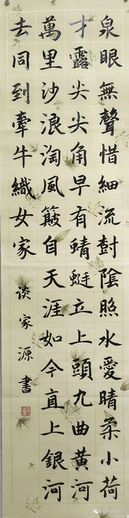 泉眼無聲惜細流對陰照水愛晴柔小荷
才露尖尖角早有蜻蜓立上頭九曲黄河
萬里沙浪淘風簸自天涯如今直上銀河
去同到牽牛織女家
谈家源書